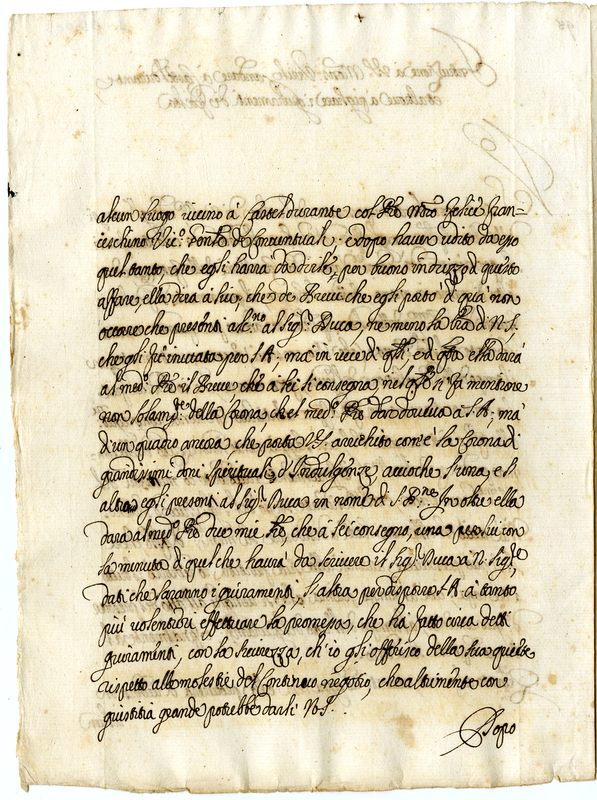 alcun luogo vicino à Casteldurante col Pre Mro Felice Fran=
ceschino Vico: Gente de Conventuali; e dopo haver udito da esso
quel tanto, che egli havrà da dirle, per buono indrizzo di questo
affare, ella dirà à lui, che de Brevi che egli portò di quà non
occorre che presenti alcno al Sigr Duca, ne meno la lra di N. S.
che gli fù inviata per S. A; mà in vece di qlli, e di qsta ella darà
al medo Pre il Breve che à lei si consegna, nel qle si fà mentione
non solamte della Corona che'l medo Pre dar doveva à S. A; mà
d'un quadro ancora, che porta V. S. arrichito com'è la Corona di
grandissimi doni Spirituali, d'Indulgenze, acciòche l'una, e l'
altro egli presenti al Sigr Duca in nome di S. Bne. In oltre ella
darà al medo Pre due mie lre, che à lei consegno, una per lui con
la minuta di quel che haurà da scrivere il Sigr Duca a N. Sigre
dati che saranno i giuramenti, l'altra per disporre S. A. à tanto
più volentieri effettuare la promessa, che hà fatto circa detti
giuramenti, con la sicurezza, ch'io gli offerisco della sua quiete
rispetto alle molestie del Continovo negotio, che altrimente con
giustitia grande potrebbe darli N. S.
Dopo